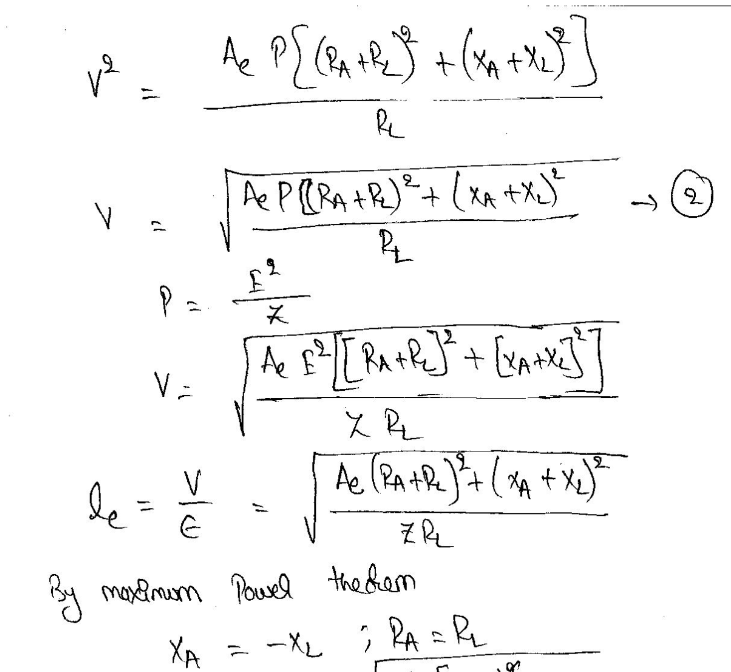 V² = Ae P[(RA+RL)² + (XA+XL)²] / RL
V = √(Ae P[(RA+RL)² + (XA+XL)² / RL) → ②
P = E² / Z
V = √(Ae E²[[RA+RL]² + [XA+XL]²] / Z RL)
le = V/E = √(Ae (RA+RL)² + (XA+XL)² / Z RL)
By maximum Power theorem
XA = -XL ; RA = RL